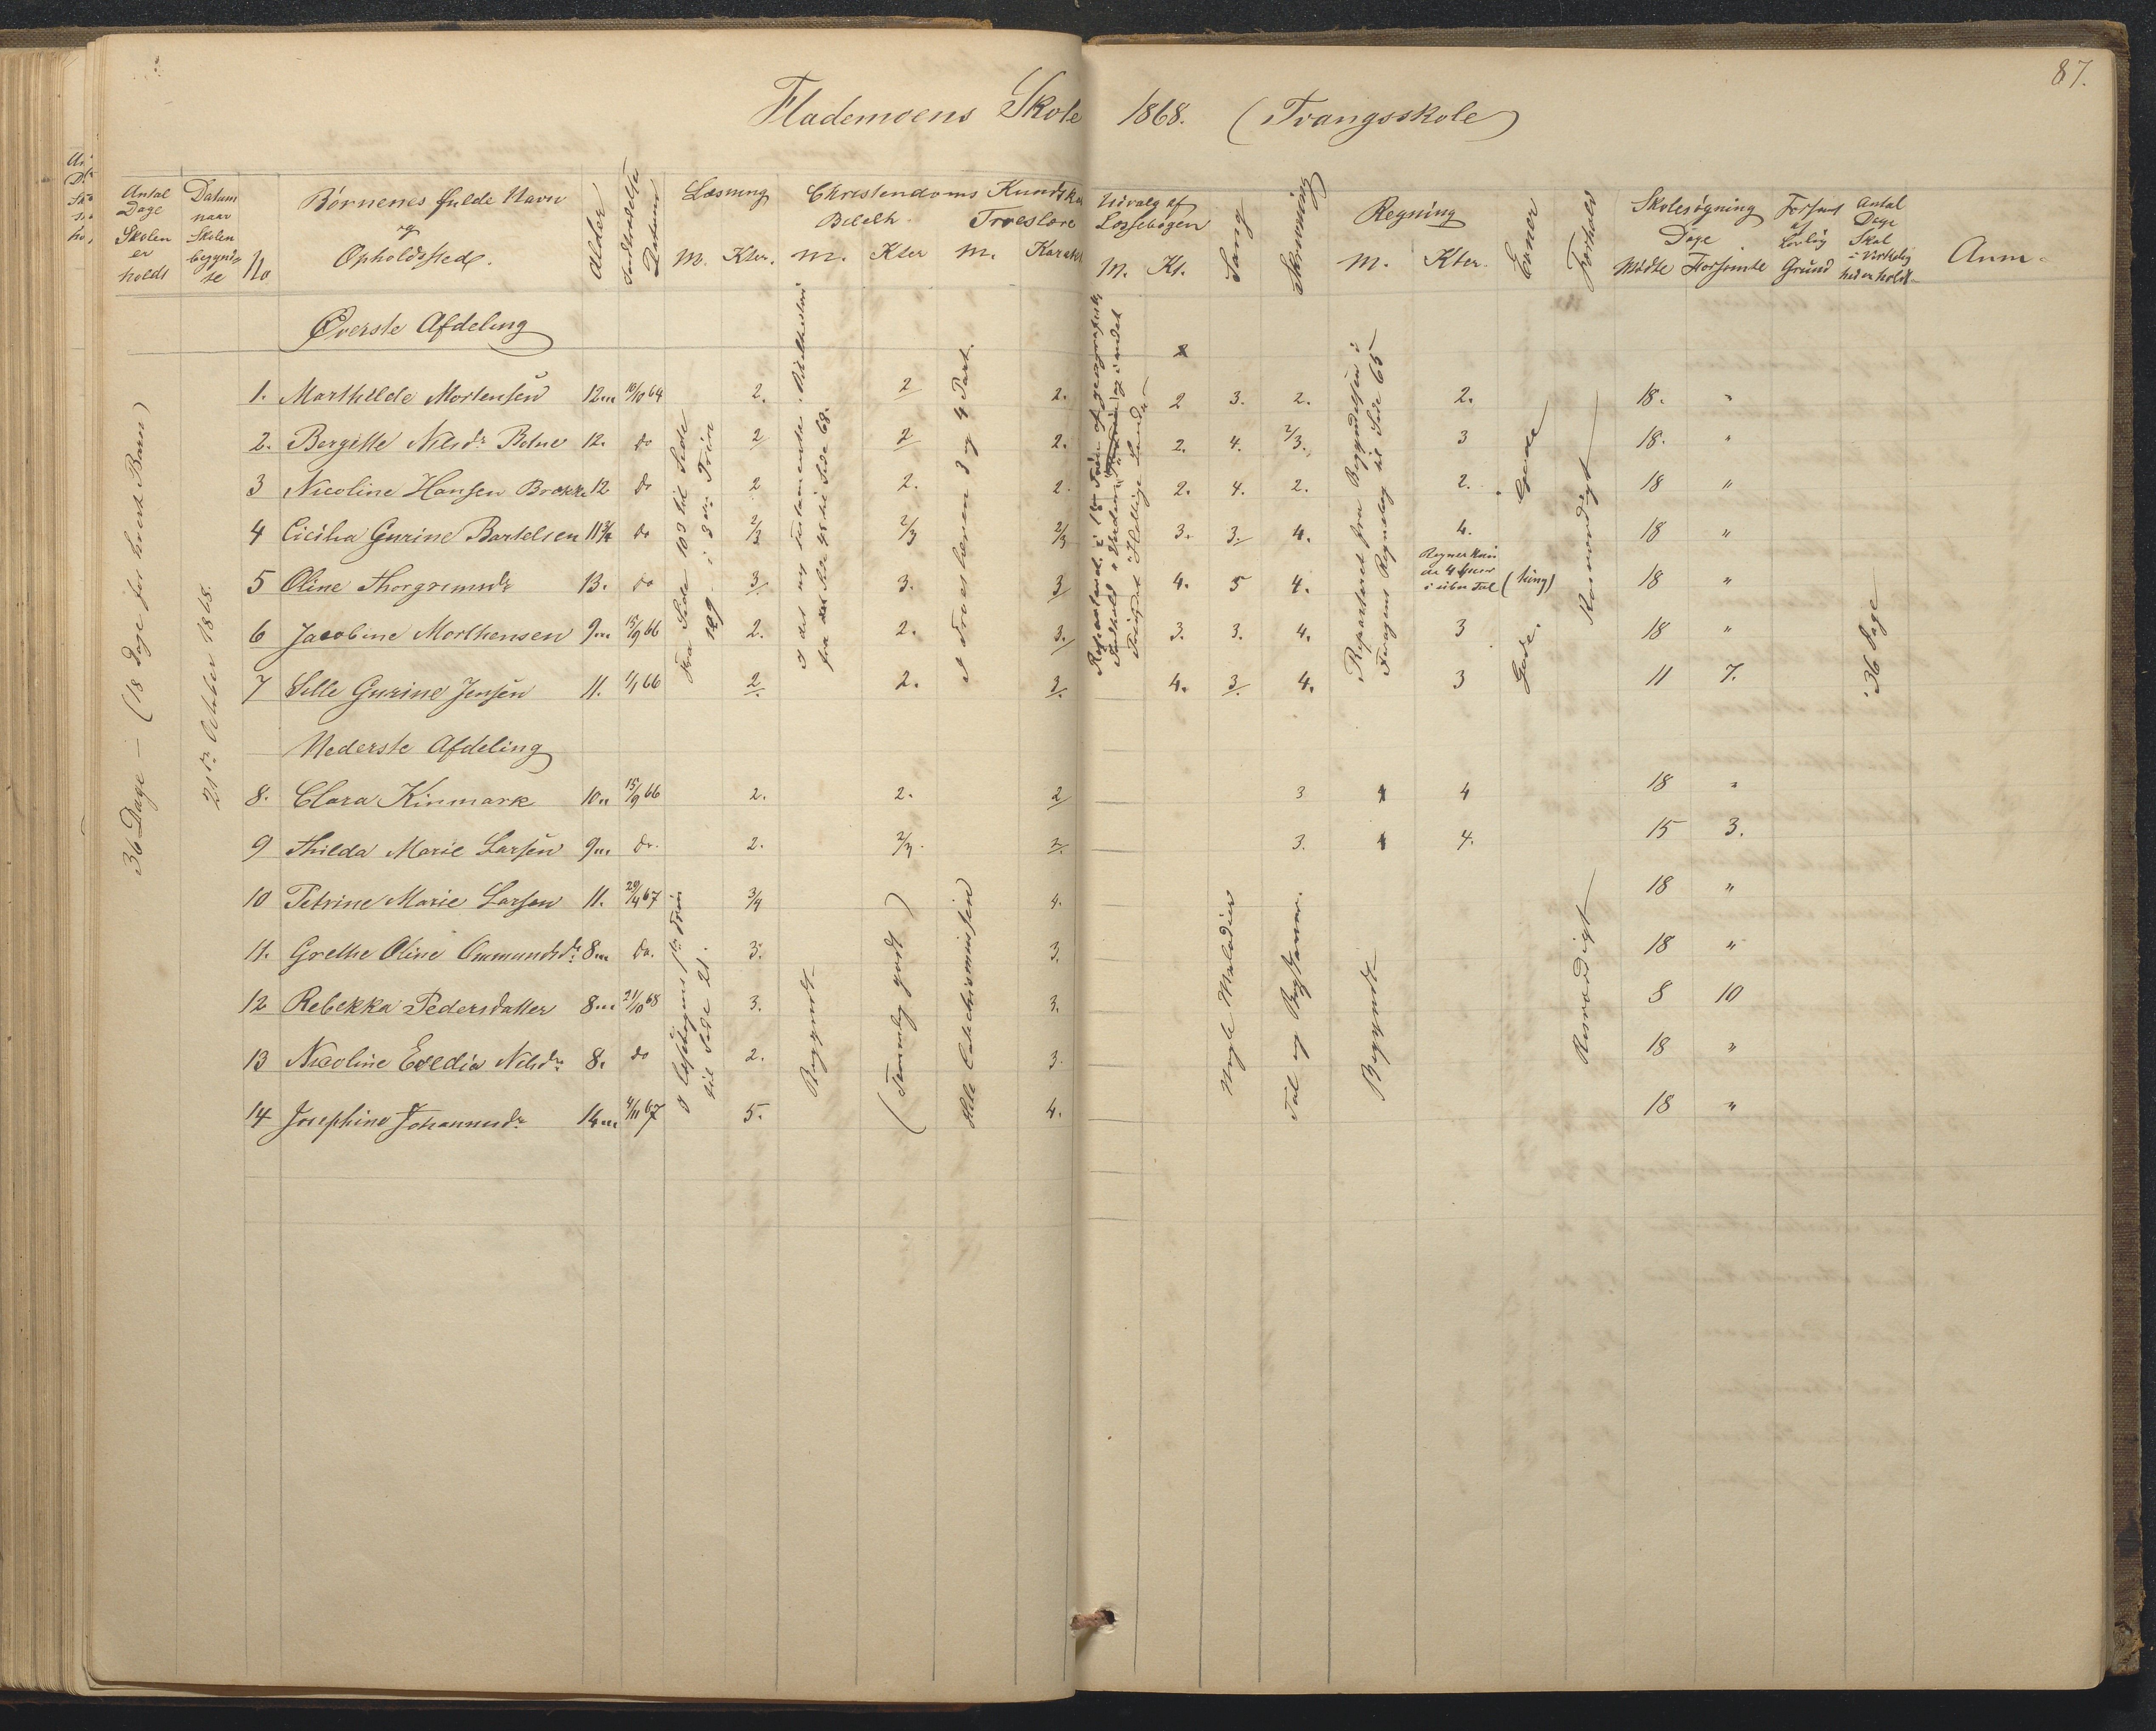 87.
Flademoens Skole 1868. (Tvangsskole)
Antal Dage Skolen er holdt
Datum naar Skolen begyndte
No
Børnenes fulde Navn og Opholdssted.
Alder
Indtrædelses Datum
Læsning M. Kter.
Christendoms Kundskab
Bibelh. M. Kter
Troeslære M. Karakt
Udvalg af Læsebogen M. Kr.
Sang
Skrivning
Regning M. Kter.
Evner
Forhold
Skolesøgning Dage Mødte Forsømte
Forsømt af lovlig Grund
Antal Dage Skol i Virkelighed er holdt
Anm.
36 Dage – (18 Dage for hvert Barn)
21de October 1868.
Øverste Afdeling
1. Marthilde Mortensen 12 10/10 64 2. 2 2. 2 3. 2. 2. 18. "
2. Bergitte Nilsdr. 12. do 2 2 2. 2. 4. 2/3. 3 18. "
3 Nicoline Hansen Brække 12 do 2 2. 2. 2. 4. 2. 2. 18 "
4 Cicilia Gurine Bartelsen 11 3/4 do 2/3 2/3 2/3 3. 3. 4. 4. 18 "
5 Oline Thorgrimsdr 13. do 3. 3. 3 4. 5 4. Regner kun de 4 i ube Tal (ring) 18 "
6 Jacobine Morthensen 9 15/9 66 2. 2. 3. 3. 3. 4. 3 18 "
7 Sille Gurine Jensen 11. 1/1 66 2. 2. 3. 4. 3. 4. 3 11 7.
Fra Side 103 til Side 129 i 3die Trin
I det ny Testamente Bibelhistori fra Side 48 til Side 68.
I Troeslæren 3 og 4 Part.
Repartered fra Begyndelsen i Regnebog til Side 65
Gode
Gode.
Rosværdigt
36 Dage
Nederste Afdeling
8. Clara Kinmark 10 15/9 66 2. 2. 2 3 4 18 "
9 Thilda Marie Larsen 9 do. 2. 2/3. 3. 3. 4. 15 3.
10 Petrine Marie Larsen 11. 29/4 67 3/4 4. 18 "
11. Grethe Oline Ommundsdr. 8 do. 3. 3. 18 "
12 Rebekka Pedersdatter 8 21/10 68 3. 3. 8 10
13 Nicoline Eveldia Nilsdr. 8. do 2. 3. 18 "
14 Josephine Johannesdr. 14 4/11 67 5. 4. 18 "
I Læsebogens 1ste Trin til Side 21.
Begyndt
(Temmelig godt)
Hele Catechismussen
Nogle Melodier
Tal og Bogstaver.
Begyndt
Rosværdigt